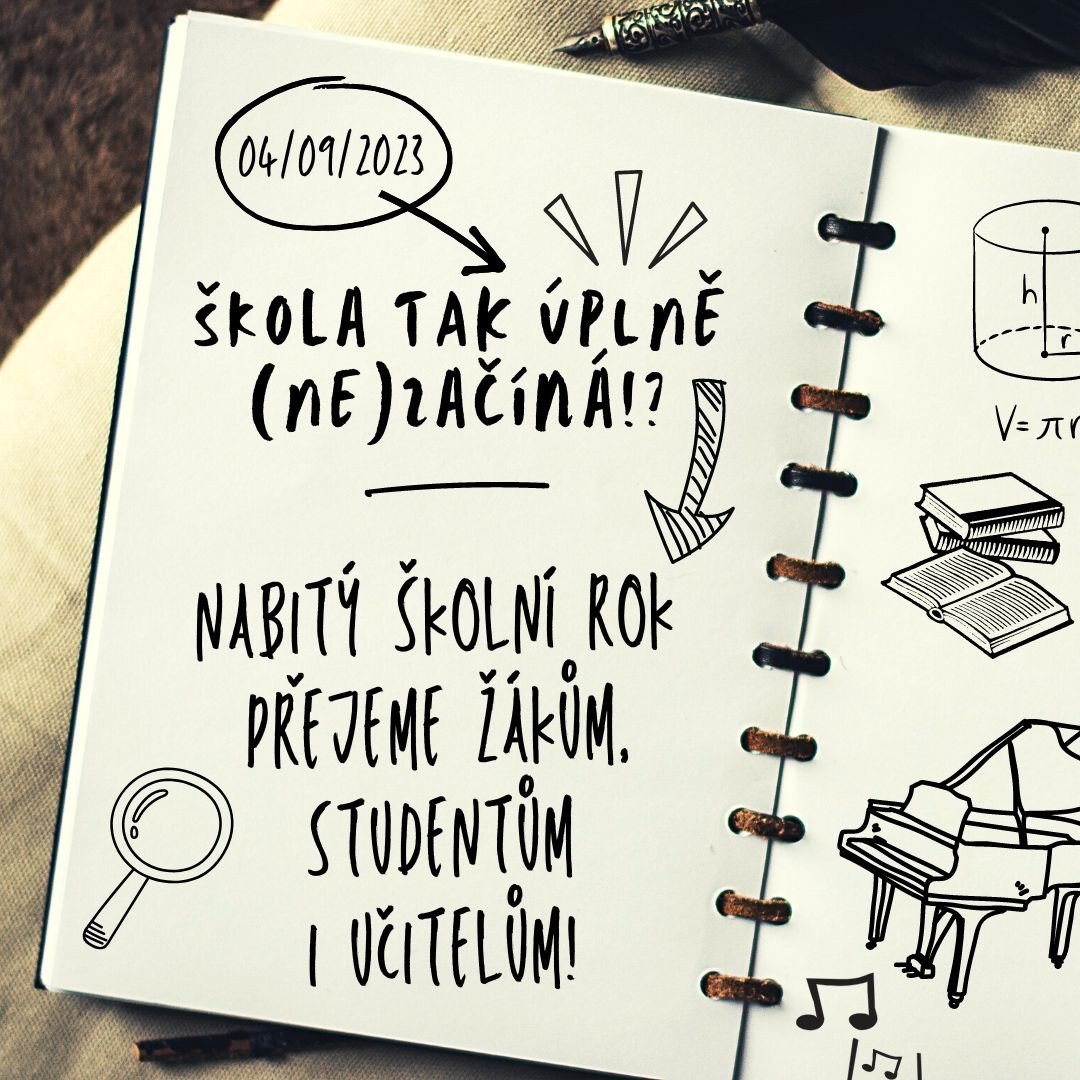 04/09/2023
ŠKOLA TAK ÚPLNĚ
(NE)ZAČÍNÁ!?
NABITÝ ŠKOLNÍ ROK
PŘEJEME ŽÁKŮM,
STUDENTŮM
I UČITELŮM!
h
r
V=πr